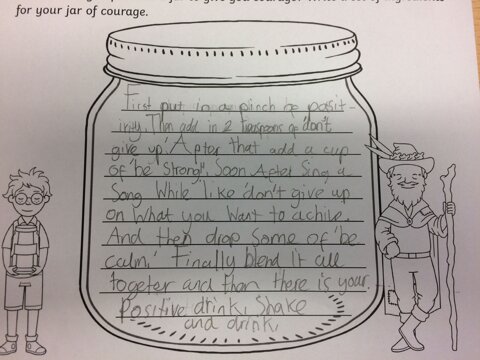 for your jar of courage.
First put in a pinch be posit-
ivity. Then add in 2 teaspoons of 'don't
give up'. After that add a cup
of 'be strong". Soon After Sing a
Song While like 'don't give up
on What you Want to achive.
And then drop some of 'be
calm.' Finally blend it all
togeter and than there is your
Positive drink. Shake
and drink.